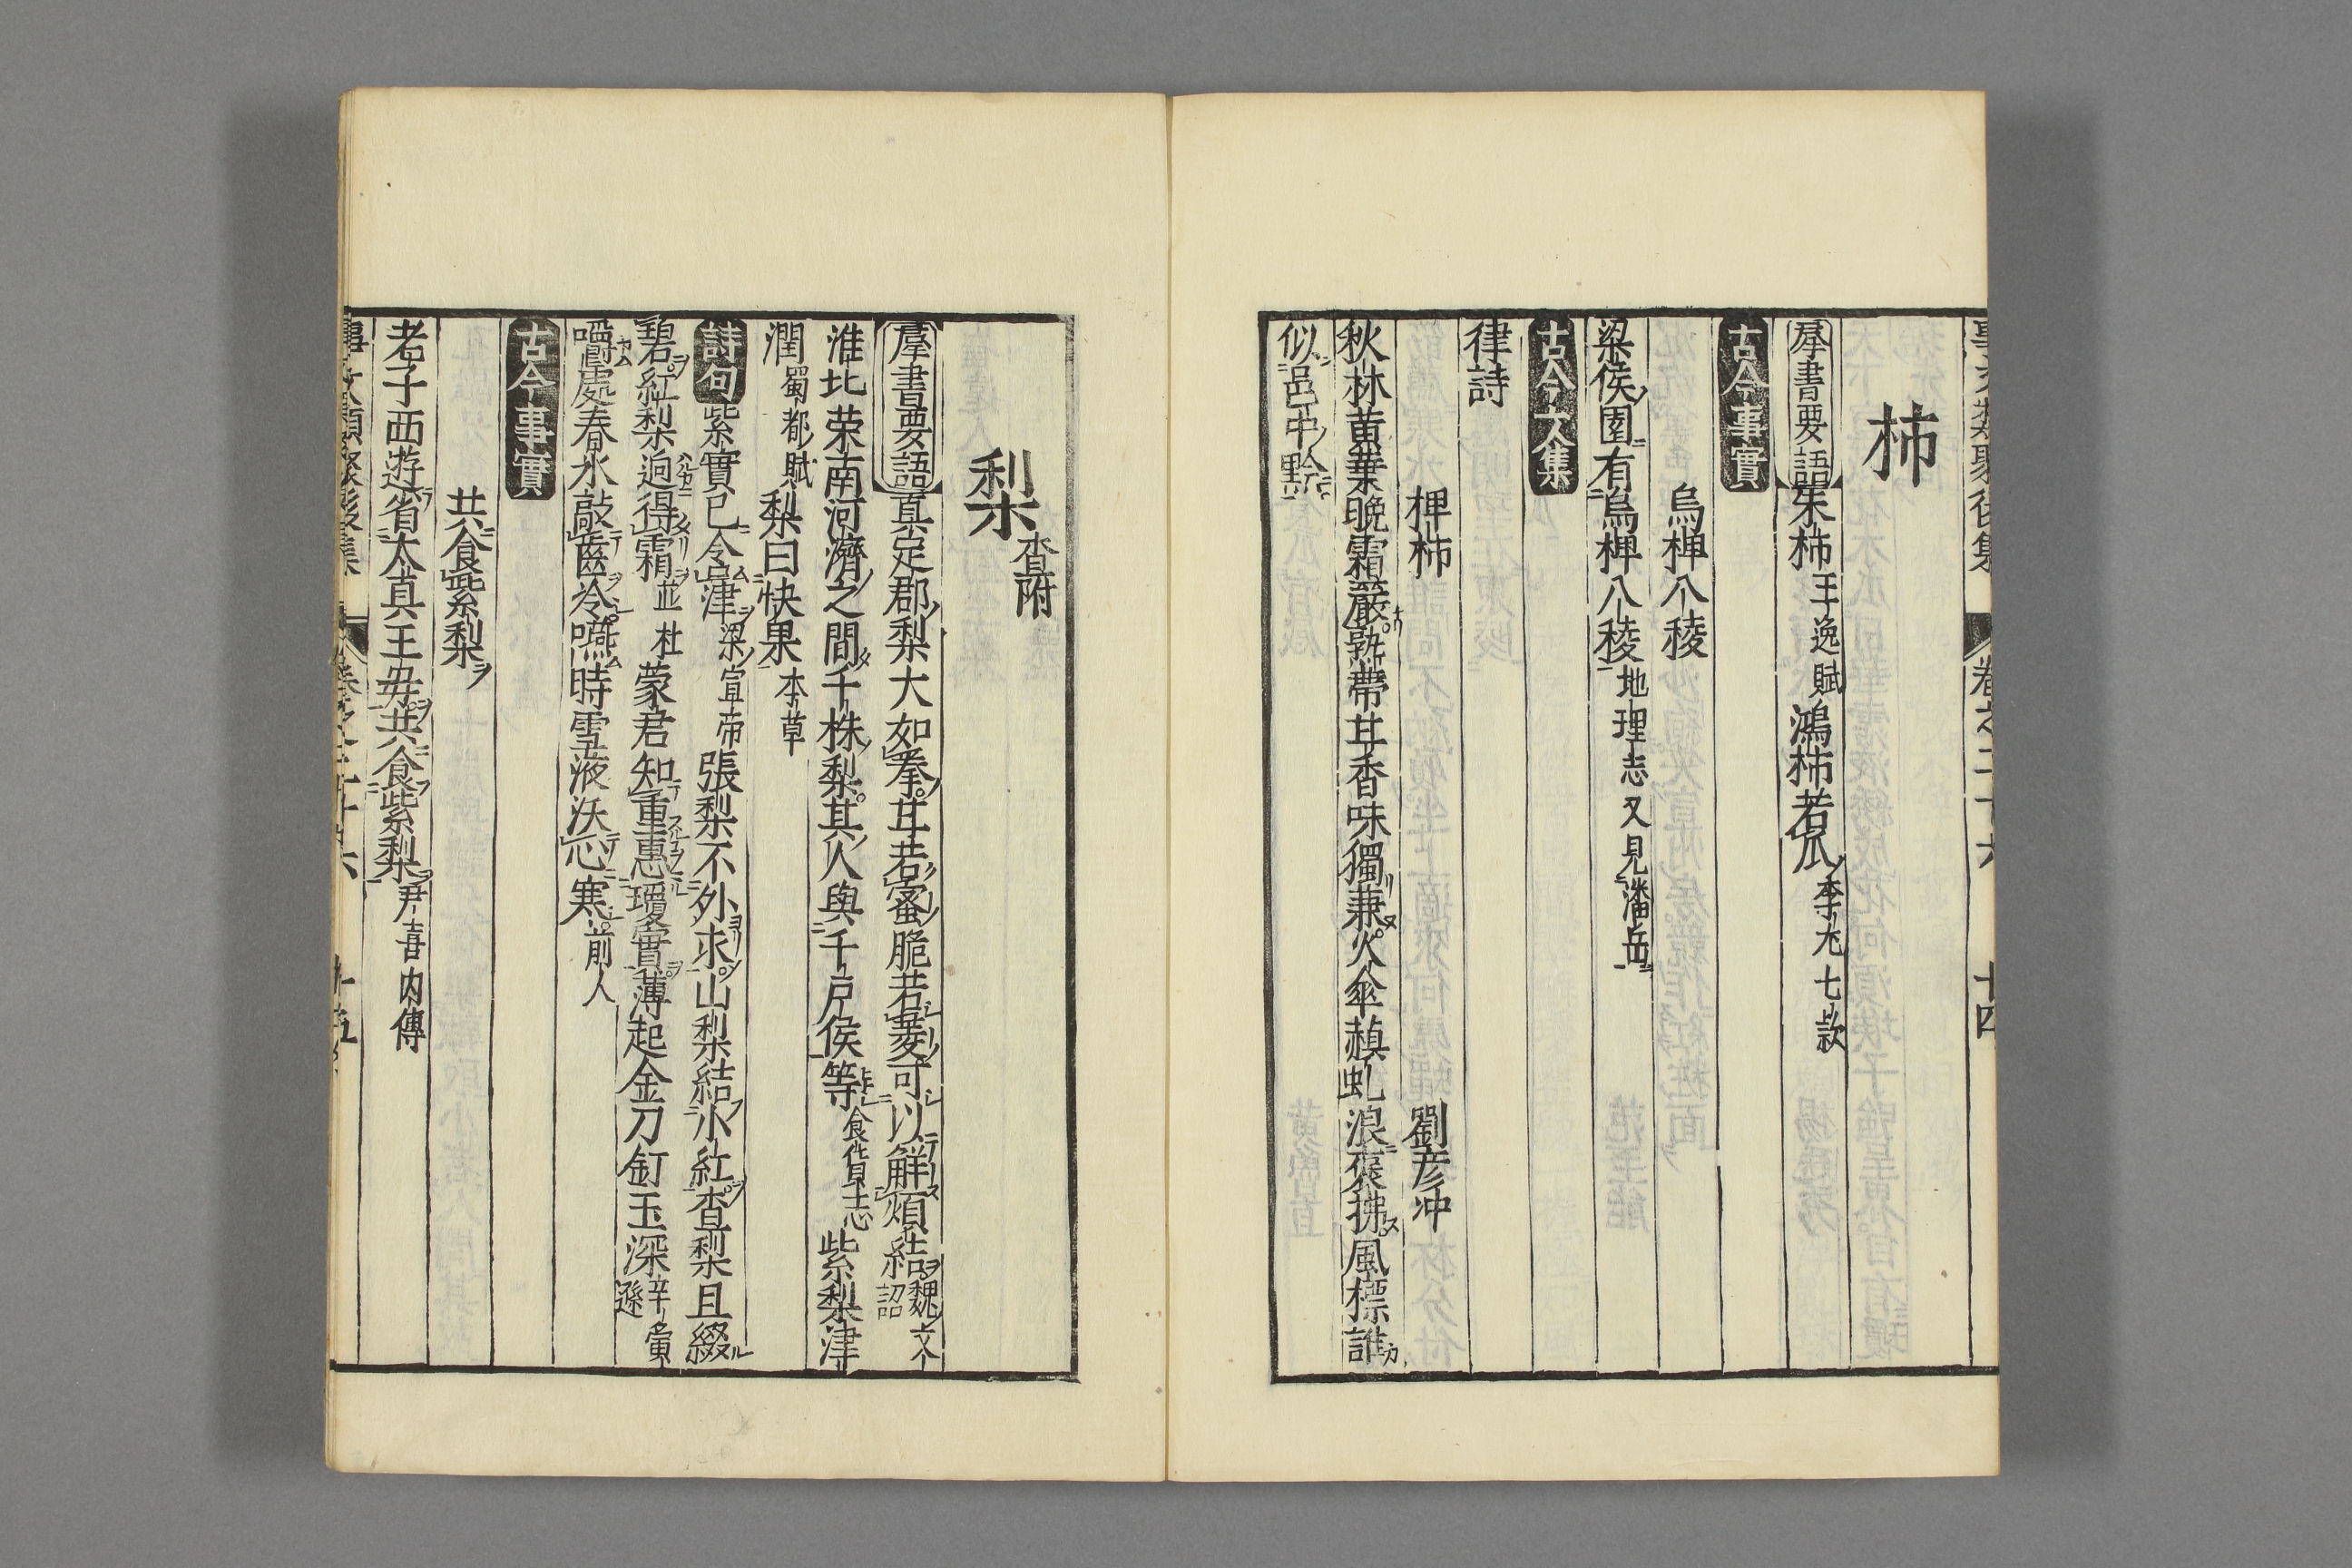 柿
羣書要語朱柿王逸賦鴻柿若瓜李尤七款
古今事實
烏椑八稜
梁侯園有烏椑八稜地理志又見潘岳
古今文集
律詩
椑柿 劉彦冲
秋林黄葉晚霜嚴熟蔕甘香味獨兼火傘赬虬浪褒拂風標誰
似邑中黔
梨 查附
羣書要語真定郡梨大如拳甘若蜜脆若菱可以解煩結魏文詔
淮北荣南河濟之間千株梨其人與千戸侯等食貨志紫梨津
潤蜀都賦梨曰快果本草
詩句紫實已含津梁宣帝張梨不外求山梨結小紅查梨且綴
碧紅梨迥得霜並杜蒙君知重惠瓊實薄起金刀釘玉深辛寅遜
嚼處春水敲齒冷嚥時雪液沃心寒前人
古今事實
共食紫梨
老子西遊省太真王母共食紫梨尹喜内傳